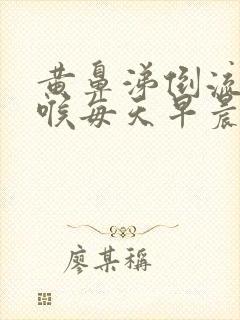 黄鼻涕倒流
喉每天早晨
廖某稱